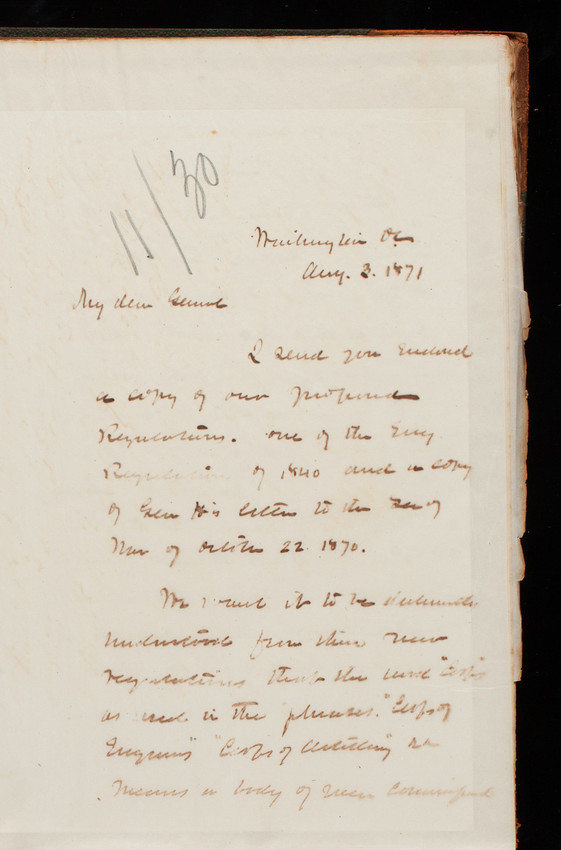 11/30
Washington DC
Aug. 3. 1871
My dear General
I send you Enclosed
a copy of our proposed
Regulations. one of the Eng
Regulations of 1840 and a copy
of Gen H's letter to the Sec of
War of October 22 1870.
We want it to be distinctly
understood from these new
regulations that the word "Corps"
as used in the phrases. "Corps of
Engineers" "Corps of Artillery" &c
means a body of men